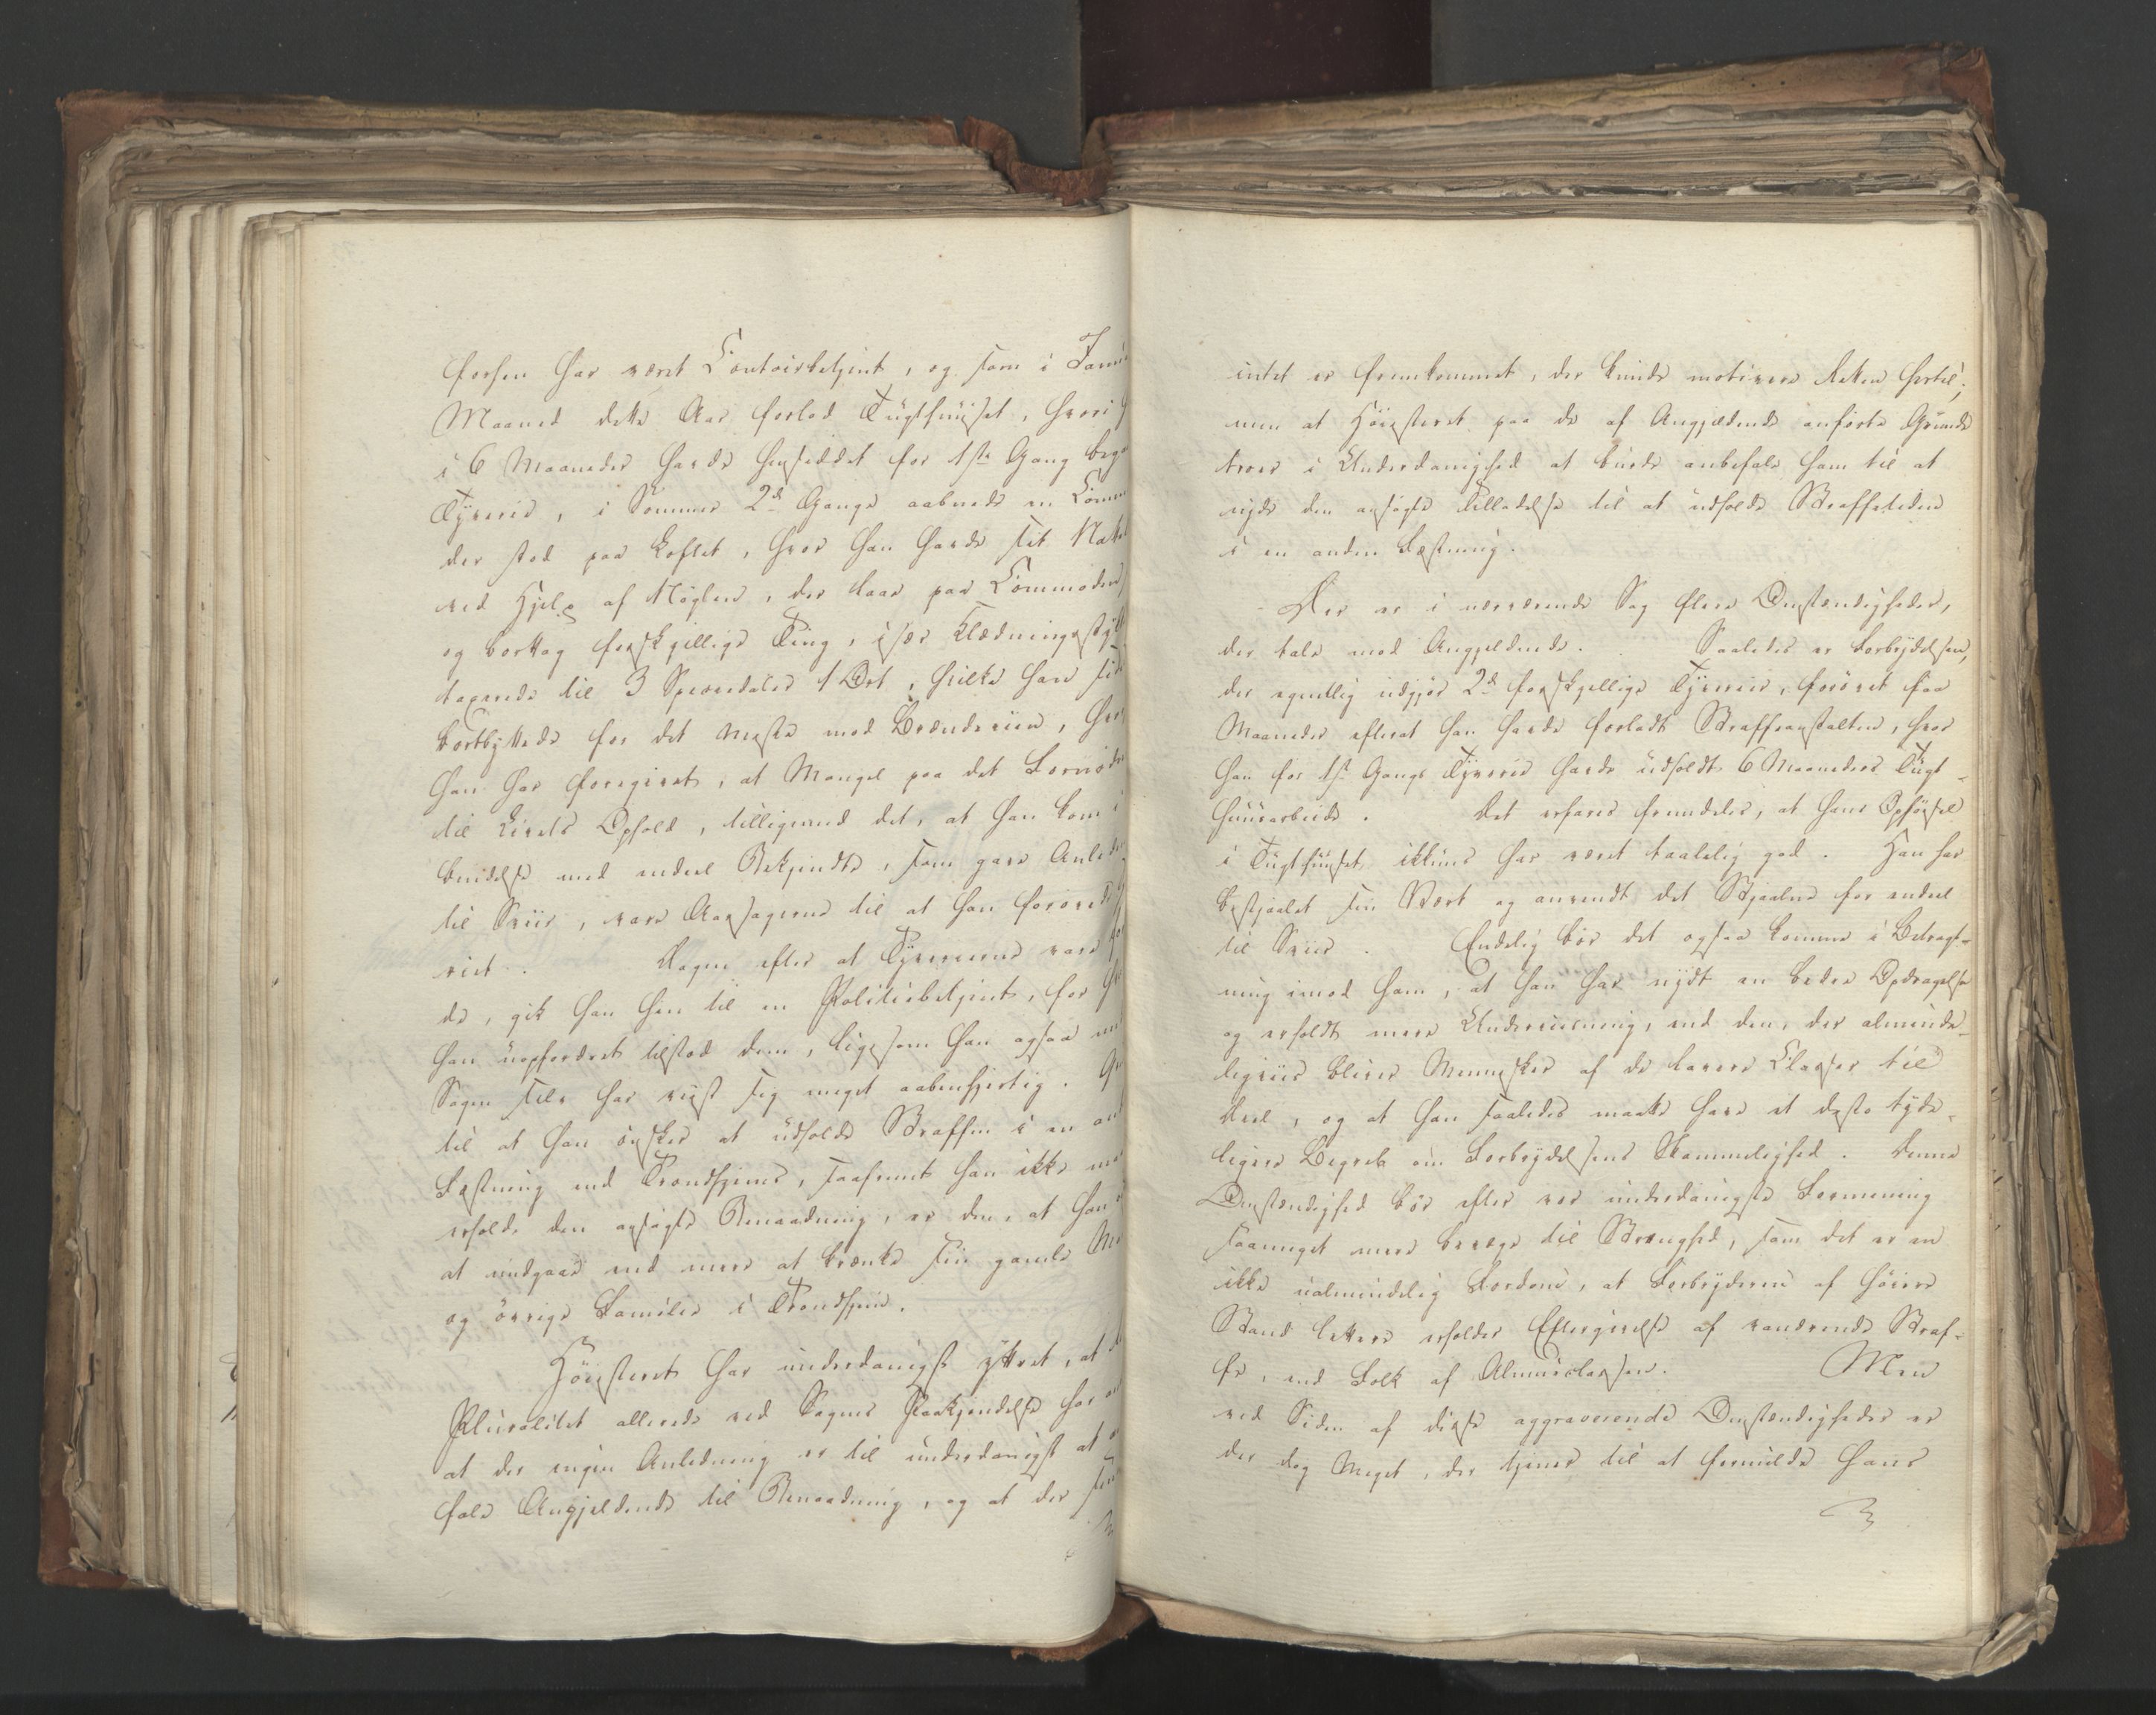 forhen har været Contoirbetjent, og som i Janu
Maaned dette Aar forlod Tugthuuset, hvori
i 6 Maaneder havde hensiddet for 1ste Gang beg
Tyverie, i Sommer 2de Gange aabnede en Comm
der stod paa Loftet, hvor han havde sit Natte
ved Hjelp af Nøglen, der laae paa Commoden
og borttog forskjellige Ting, især Klædningsstyk
taxerede til 3 Speciedaler 1 Ort, hvilke han si
bortbyttede for det meste mod Brændeviin, hvor
han har foregivet, at Mangel paa det Fornødn
til Livets Ophold, tilligemed det, at han kom i
bindelse med endeel Bekjendte, som gave Anled
til Sviir, vare Aarsagerne til at han forøvede
riet. Dagen efter at Tyverierne vare
de, gik han hen til en Politiebetjent, for
han uopfordret tilstod dem, ligesom han ogsaa un
Sagen selv har viist sig meget aabenhjertig. Gr
til at han ønsker at udholde Straffen i en and
Fæstning end Trondhjems, saafremt han ikke maa
erholde den ansøgte Benaadning, er den, at han
at undgaae end mere at krænke sin gamle Mo
og øvrige Familie i Trondhjem.
Høiesteret har underdanigst yttret, at
Pluralitet allerede ved Sagens Paakjendelse har
at der ingen Anledning er til underdanigst at
fale Angjeldende til Benaadning, og at der
intet er fremkommet, der kunde motivere Retten hertil;
men at Høiesteret paa de af Angjældende anførte Grunde
troer i Underdanighed at burde anbefale ham til at
nyde den ansøgte Tilladelse til at udholde Straffetiden
i en anden Fæstning.
Der er i nærværende Sag flere Omstændigheder,
der tale mod Angjeldende. Saaledes er Forbrydelsen,
der egentlig udgjør 2de forskjellige Tyverier, forøvet faa
Maaneder efterat han havde forladt Straffeanstalten, hvor
han for 1ste Gangs Tyverie havde udholdt 6 Maaneders Tugt-
huusarbeide. Det erfares fremdeles, at hans Opførsel
i Tugthuuset ikkuns har været taalelig god. Han har
bestjaalet sin Vert og anvendt det Stjaalne for endeel
til Sviir. Endelig bør det ogsaa komme i Betragt-
ning imod ham, at han har nydt en bedre Opdragelse
og erholdt mere Underviisning, end den, der alminde-
ligviis bliver Mennesker af de lavere Classer til
Deel, og at han saaledes maatte have et desto tyde-
ligere Begreb om Forbrydelsens Skammelighed. Denne
Omstændighed bør efter vor underdanigste Formening
saameget mere bevæge til Strenghed, som det er en
ikke ualmindelig Fordom, at Forbryderne af høiere
Stand lettere erholder Eftergivelse af vanærende Straf-
fe, end Folk af Almueclassen. Men
ved Siden af disse aggraverende Omstændigheder er
der dog Meget, der tjener til at formilde hans